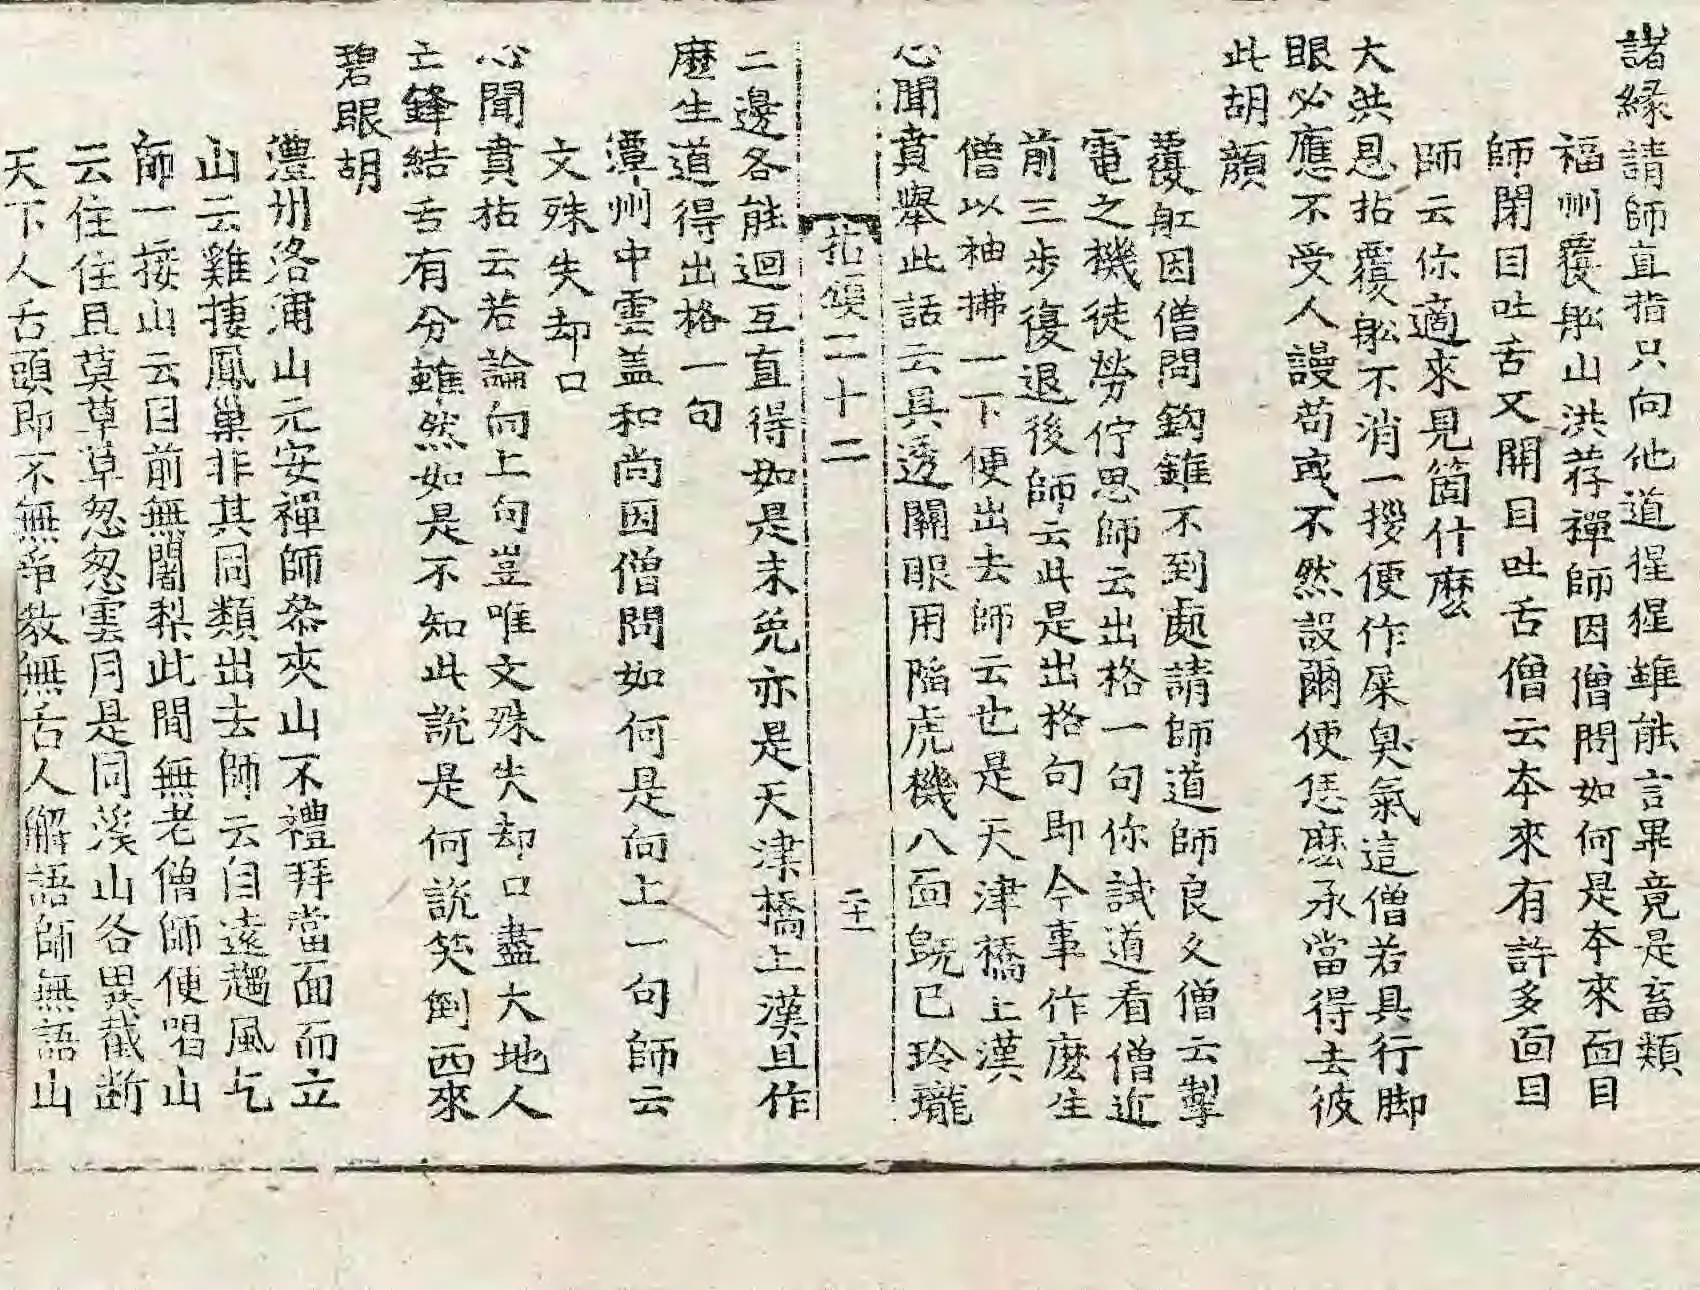 諸緣請師直指只向他道猩猩雖能言畢竟是畜類
福州覆舩山洪荐禪師因僧問如何是本來面目
師閉目吐舌又開目吐舌僧云本來有許多面目
師云你適來見箇什麽
大洪恩拈覆舩不消一拶便作屎臭氣這僧若具行脚
眼必應不受人謾苟或不然設爾便恁麽承當得去彼
此胡顔
覆舡因僧問鈎錐不到處請師道師良久僧云掣
電之機徒勞佇思師云出格一句你試道看僧近
前三步復退後師云此是出格句即今事作麽生
僧以袖拂一下便出去師云也是天津橋上漢
心聞賁舉此話云具透關眼用陷虎機八面既已玲瓏
拈頌二十二
二十二
二邊各能迴互直得如是未免亦是天津橋上漢且作
麽生道得出格一句
潭州中雲盖和尚因僧問如何是向上一句師云
文殊失却口
心聞賁拈云若論向上句豈唯文殊失却口盡大地人
亡鋒結舌有分雖然如是不知此説是何説笑倒西來
碧眼胡
澧州洛浦山元安禪師叅夾山不禮拜當面而立
山云雞捿鳳巢非其同類出去師云自遠趨風乞
師一接山云目前無闍梨此間無老僧師便喝山
云住住且莫草草忽忽雲月是同溪山各異截断
天下人舌頭即不無爭教無舌人解語師無語山